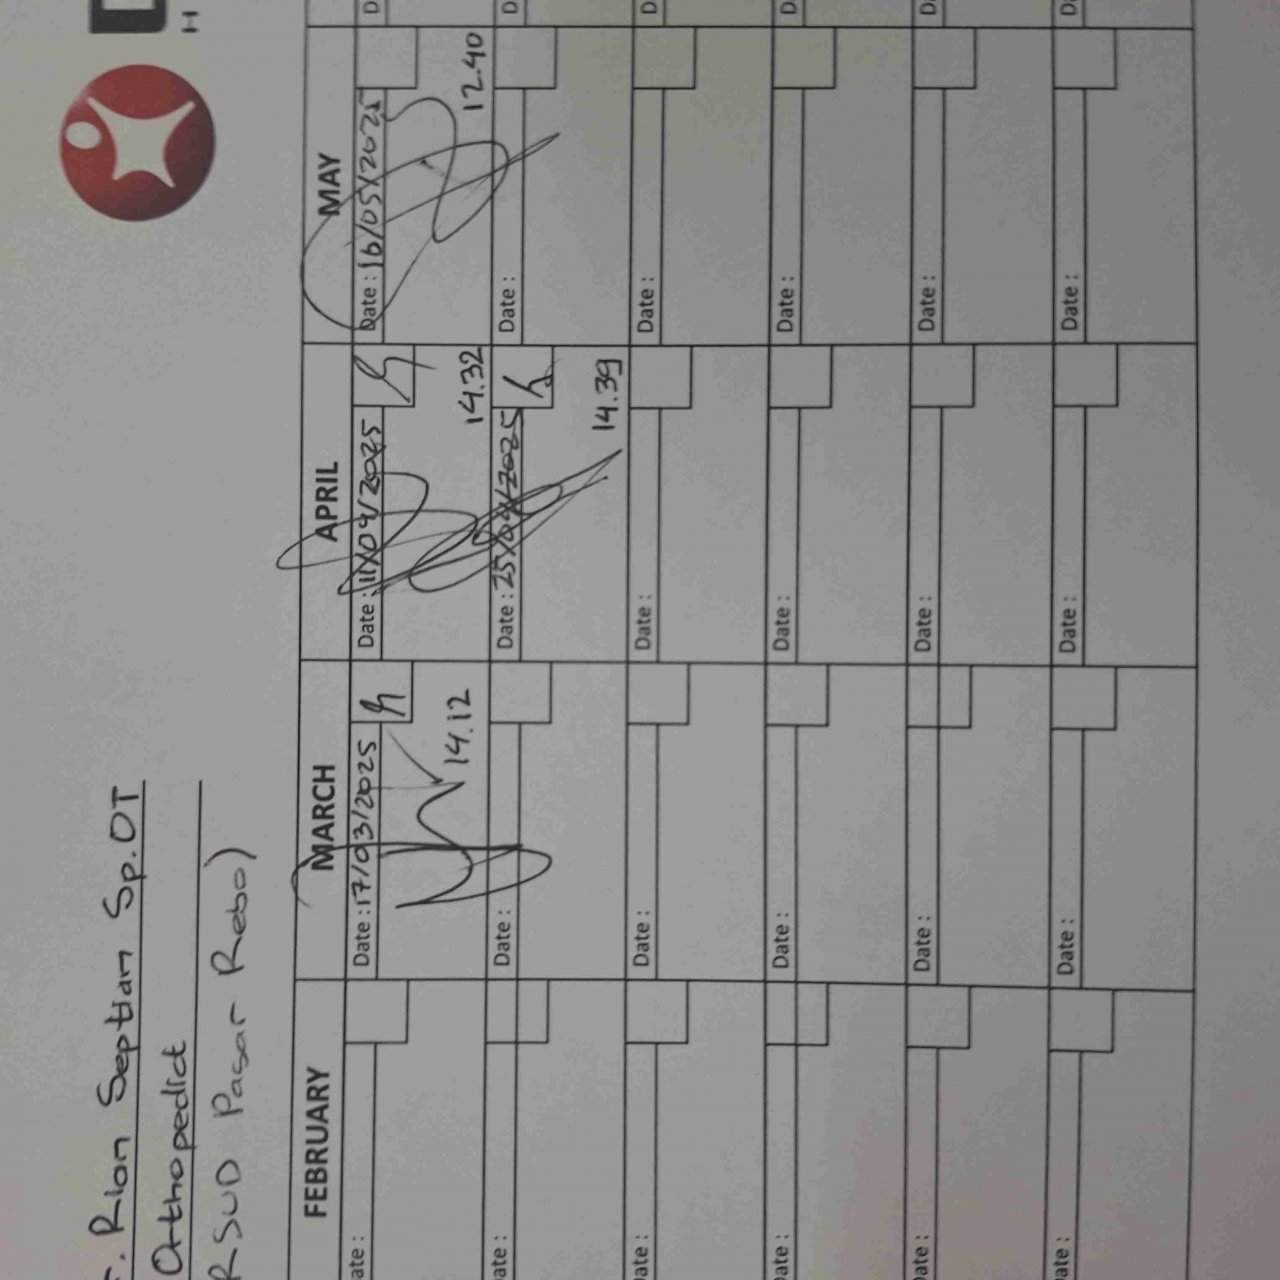 r. Rion Septian Sp.OT
Orthopedict
RSUD Pasar Rebo)
FEBRUARY MARCH APRIL MAY
ate : Date : 17/03/2025 Date : 11/04/2025 Date : 16/05/2025 D
14.12 14.32 12.40
ate : Date : Date : 25/04/2025 Date : D
14.39
ate : Date : Date : Date : D
ate : Date : Date : Date : D
ate : Date : Date : Date : Da
ate : Date : Date : Date : Da